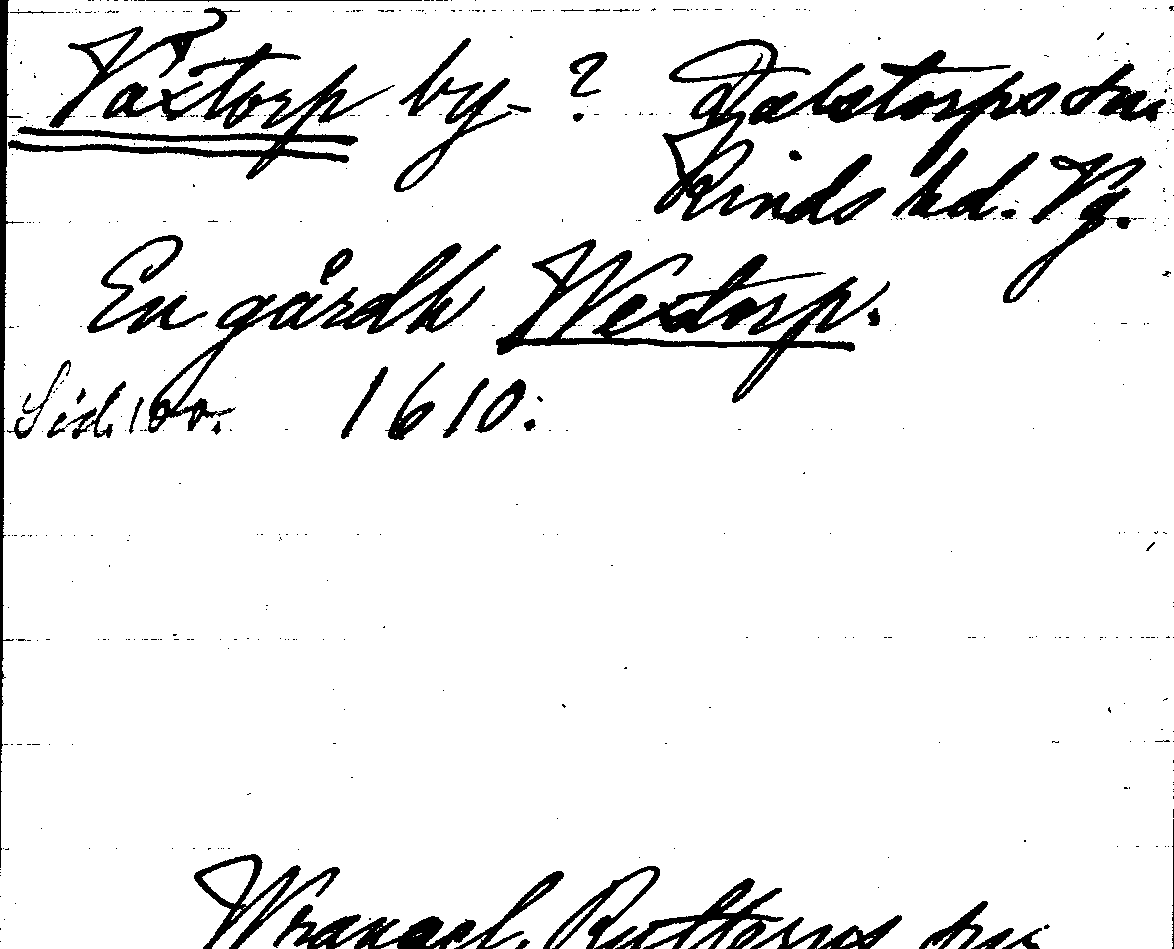 Växtorp by? Dalstorps sn.
Kinds hd. Vg.
En gårdh Wextorp.
Sid. 100. 1610.
Wrangel,